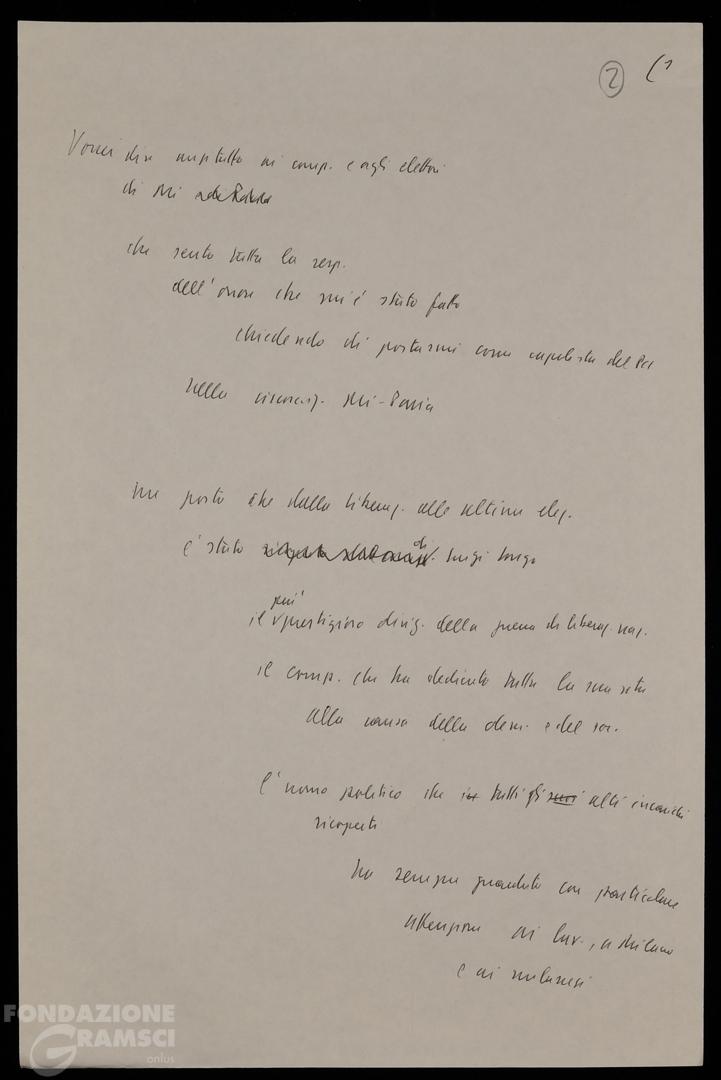 2 (1
Vorrei dire anzitutto ai comp. e agli elettori
di Mi
che sento tutta la resp.
dell'onore che mi è stato fatto
chiedendo di portarmi come capolista del Pci
nella circoscriz. Mi-Pavia
un posto che dalla liberaz. alle ultime elez.
è stato di Luigi Longo
il più prestigioso dirig. della guerra di liberaz. naz.
il comp. che ha dedicato tutta la sua vita
alla causa della dem. e del soc.
l'uomo politico che in tutti gli suoi alti incarichi
ricoperti
ha sempre guardato con particolare
attenzione ai lav., a Milano
e ai milanesi
FONDAZIONE
GRAMSCI
onlus